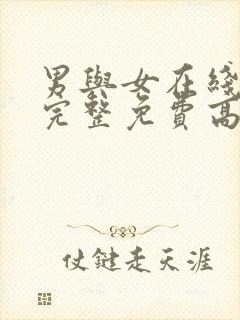 男與女在綫
完整免費高
仗鍵走天涯